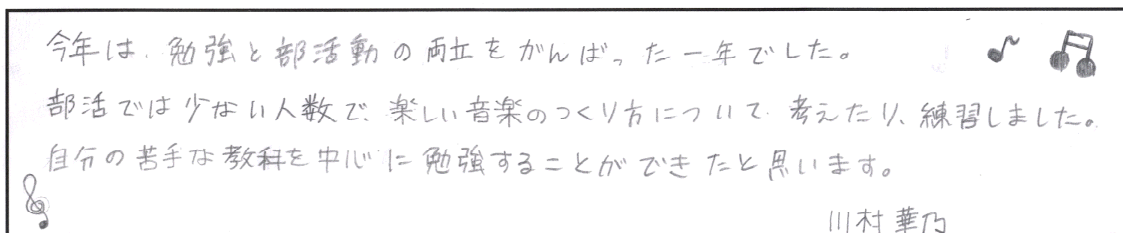 今年は、勉強と部活動の両立をがんばった一年でした。
部活では少ない人数で、楽しい音楽のつくり方について、考えたり、練習しました。
自分の苦手な教科を中心に勉強することができたと思います。
川村華乃